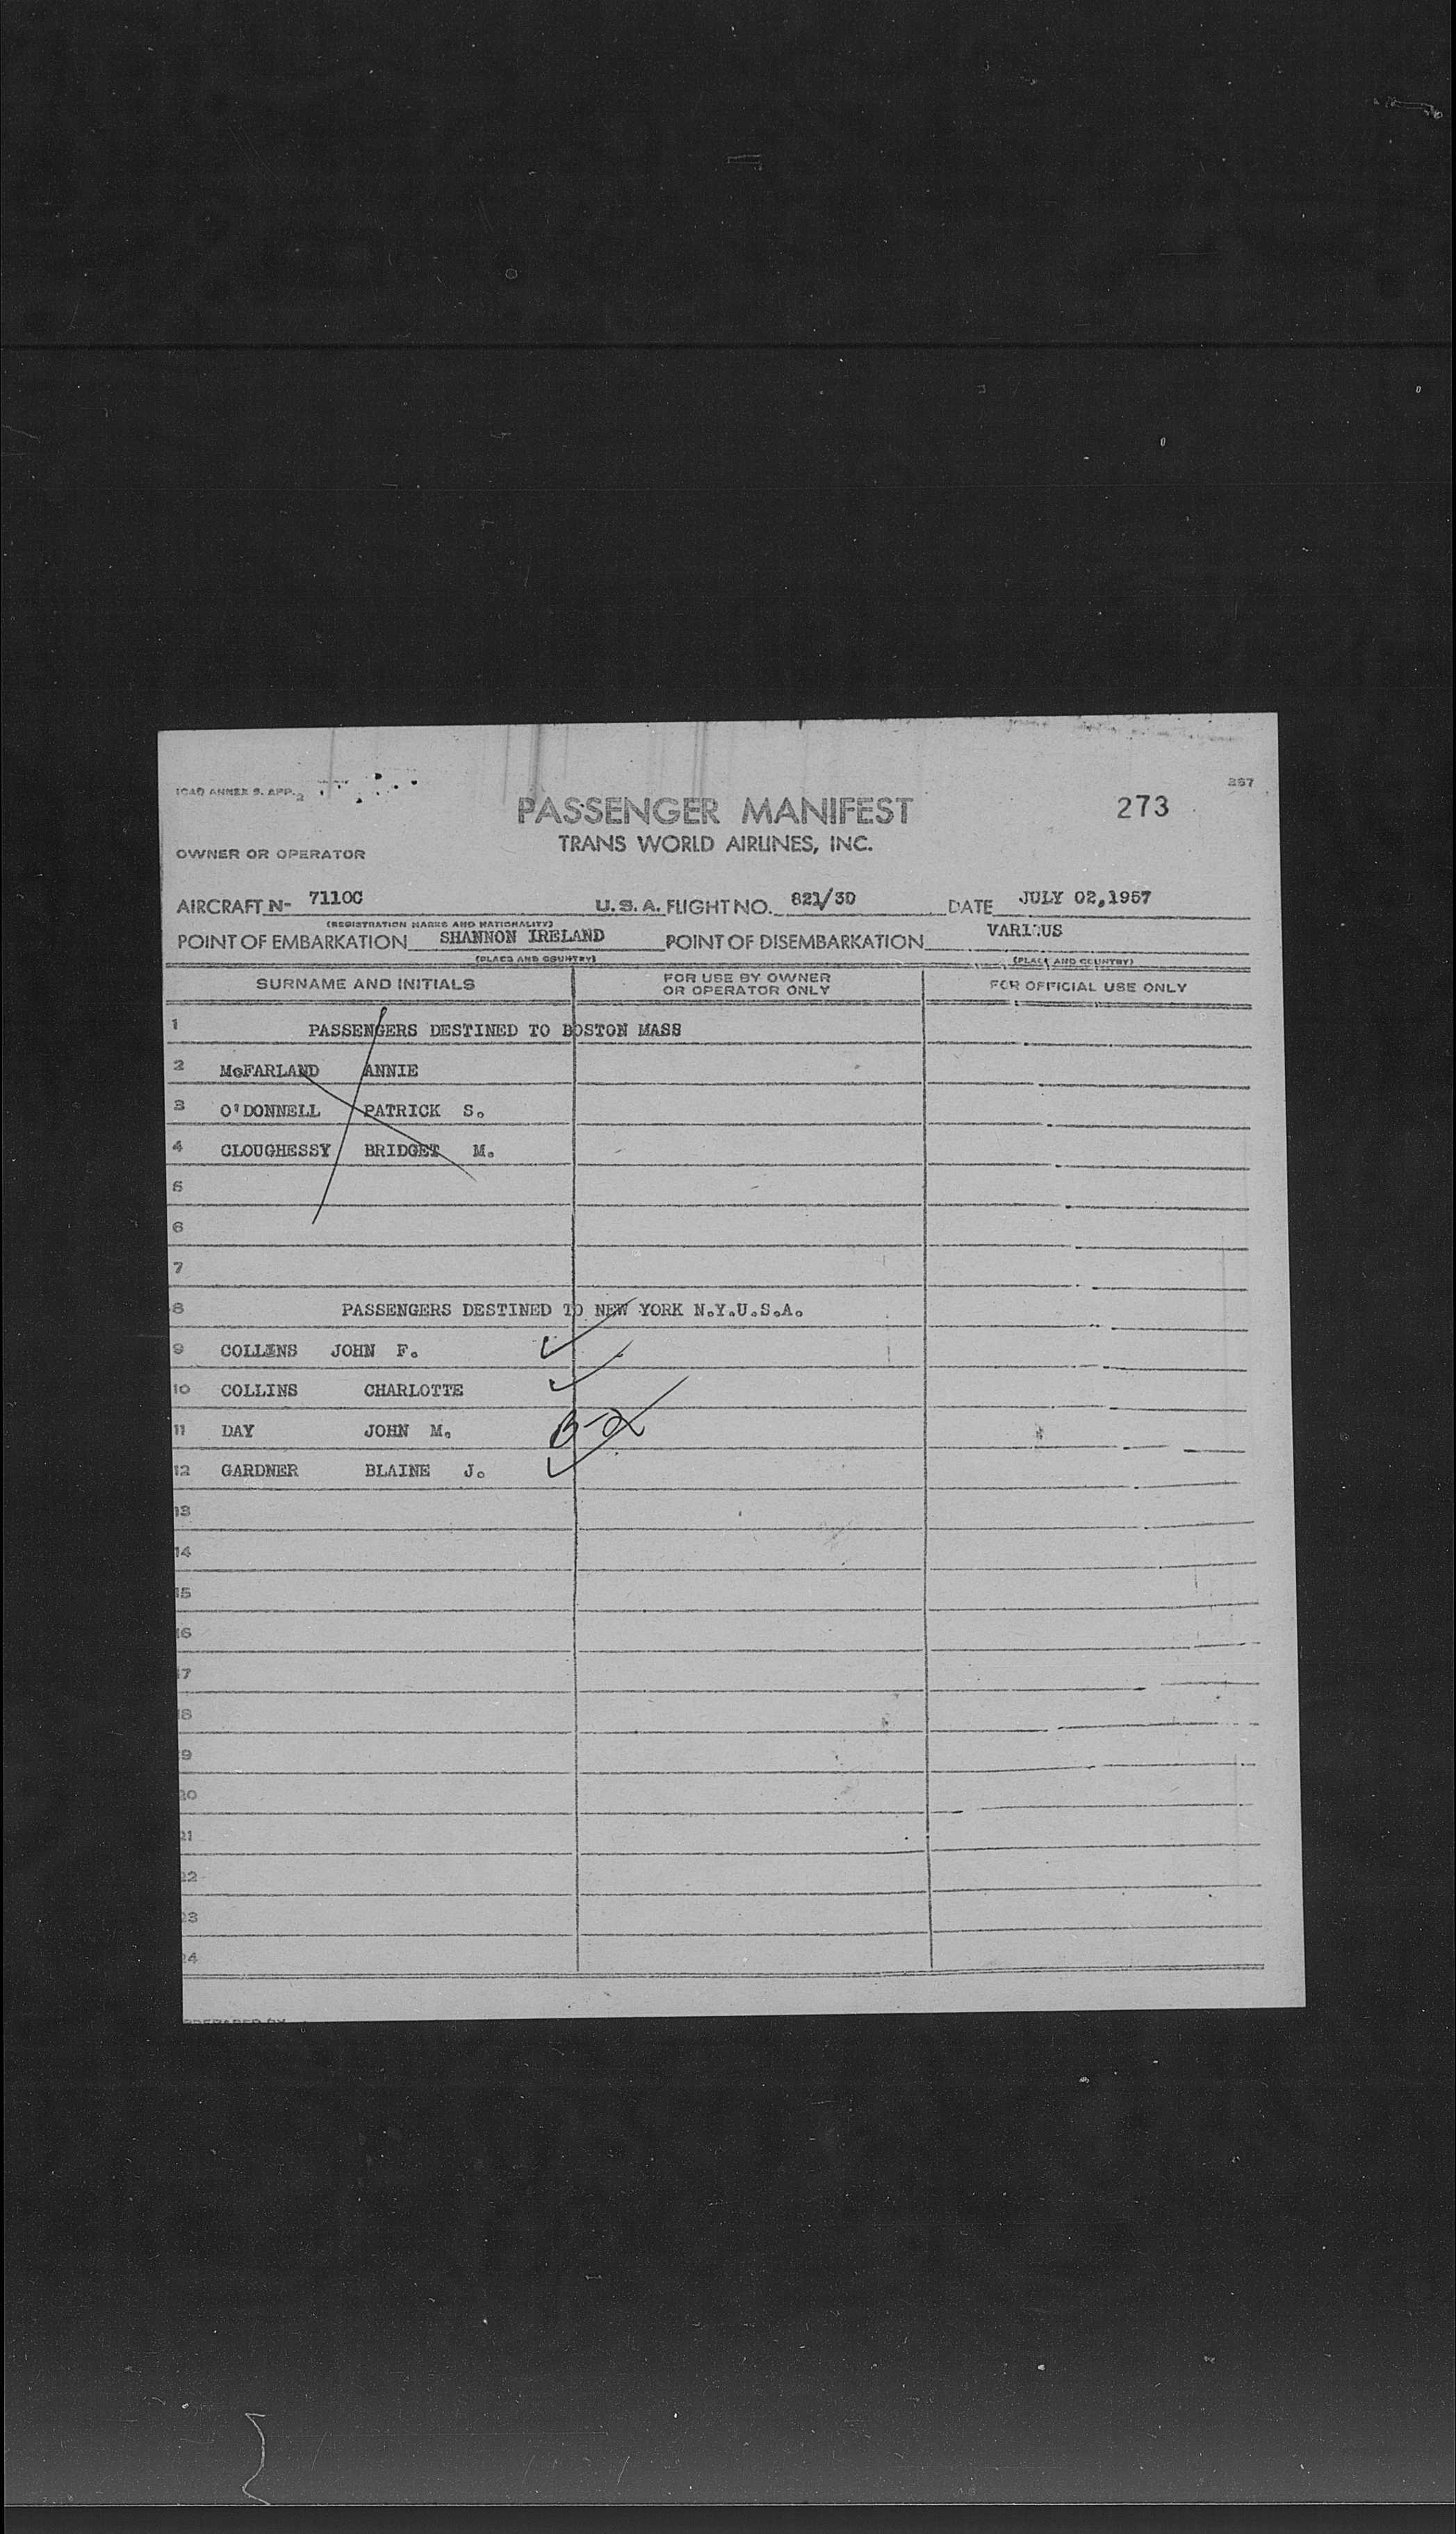 ICAO ANNEX 9. APP. 2
267
PASSENGER MANIFEST
273
TRANS WORLD AIRLINES, INC.
OWNER OR OPERATOR
AIRCRAFT N- 7110C U.S.A. FLIGHT NO. 821/30 DATE JULY 02,1957
(REGISTRATION MARKS AND NATIONALITY)
POINT OF EMBARKATION SHANNON IRELAND POINT OF DISEMBARKATION VARIOUS
(PLACE AND COUNTRY) (PLACE AND COUNTRY)
SURNAME AND INITIALS FOR USE BY OWNER OR OPERATOR ONLY FOR OFFICIAL USE ONLY
1 PASSENGERS DESTINED TO BOSTON MASS
2 McFARLAND ANNIE
3 O'DONNELL PATRICK S.
4 CLOUGHESSY BRIDGET M.
5
6
7
8 PASSENGERS DESTINED TO NEW YORK N.Y.U.S.A.
9 COLLINS JOHN F.
10 COLLINS CHARLOTTE
11 DAY JOHN M. B-2
12 GARDNER BLAINE J.
13
14
15
16
17
18
19
20
21
22
23
24
PREPARED BY